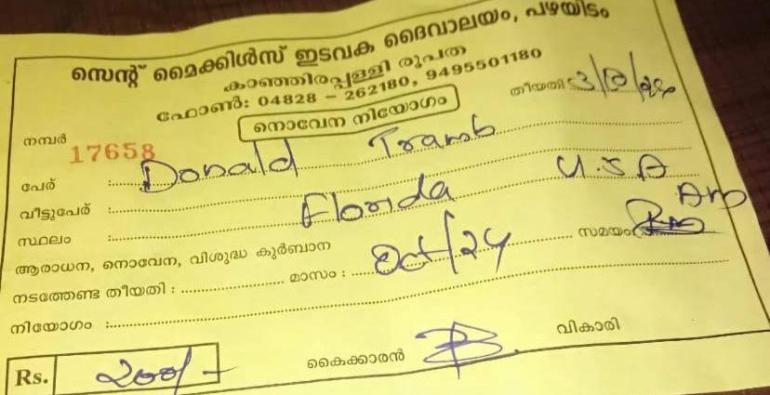 സെന്റ് മൈക്കിൾസ് ഇടവക ദൈവാലയം, പഴയിടം
കാഞ്ഞിരപ്പള്ളി രൂപത
ഫോൺ: 04828 – 262180, 9495501180
നൊവേന നിയോഗം
തീയതി
നമ്പർ 17658
പേര് : Donald Tramb
വീട്ടുപേര് :
സ്ഥലം : Florida U.S.A
ആരാധന, നൊവേന, വിശുദ്ധ കുർബാന
നടത്തേണ്ട തീയതി : മാസം : Oct/24 സമയം
നിയോഗം :
Rs. 200/- കൈക്കാരൻ വികാരി